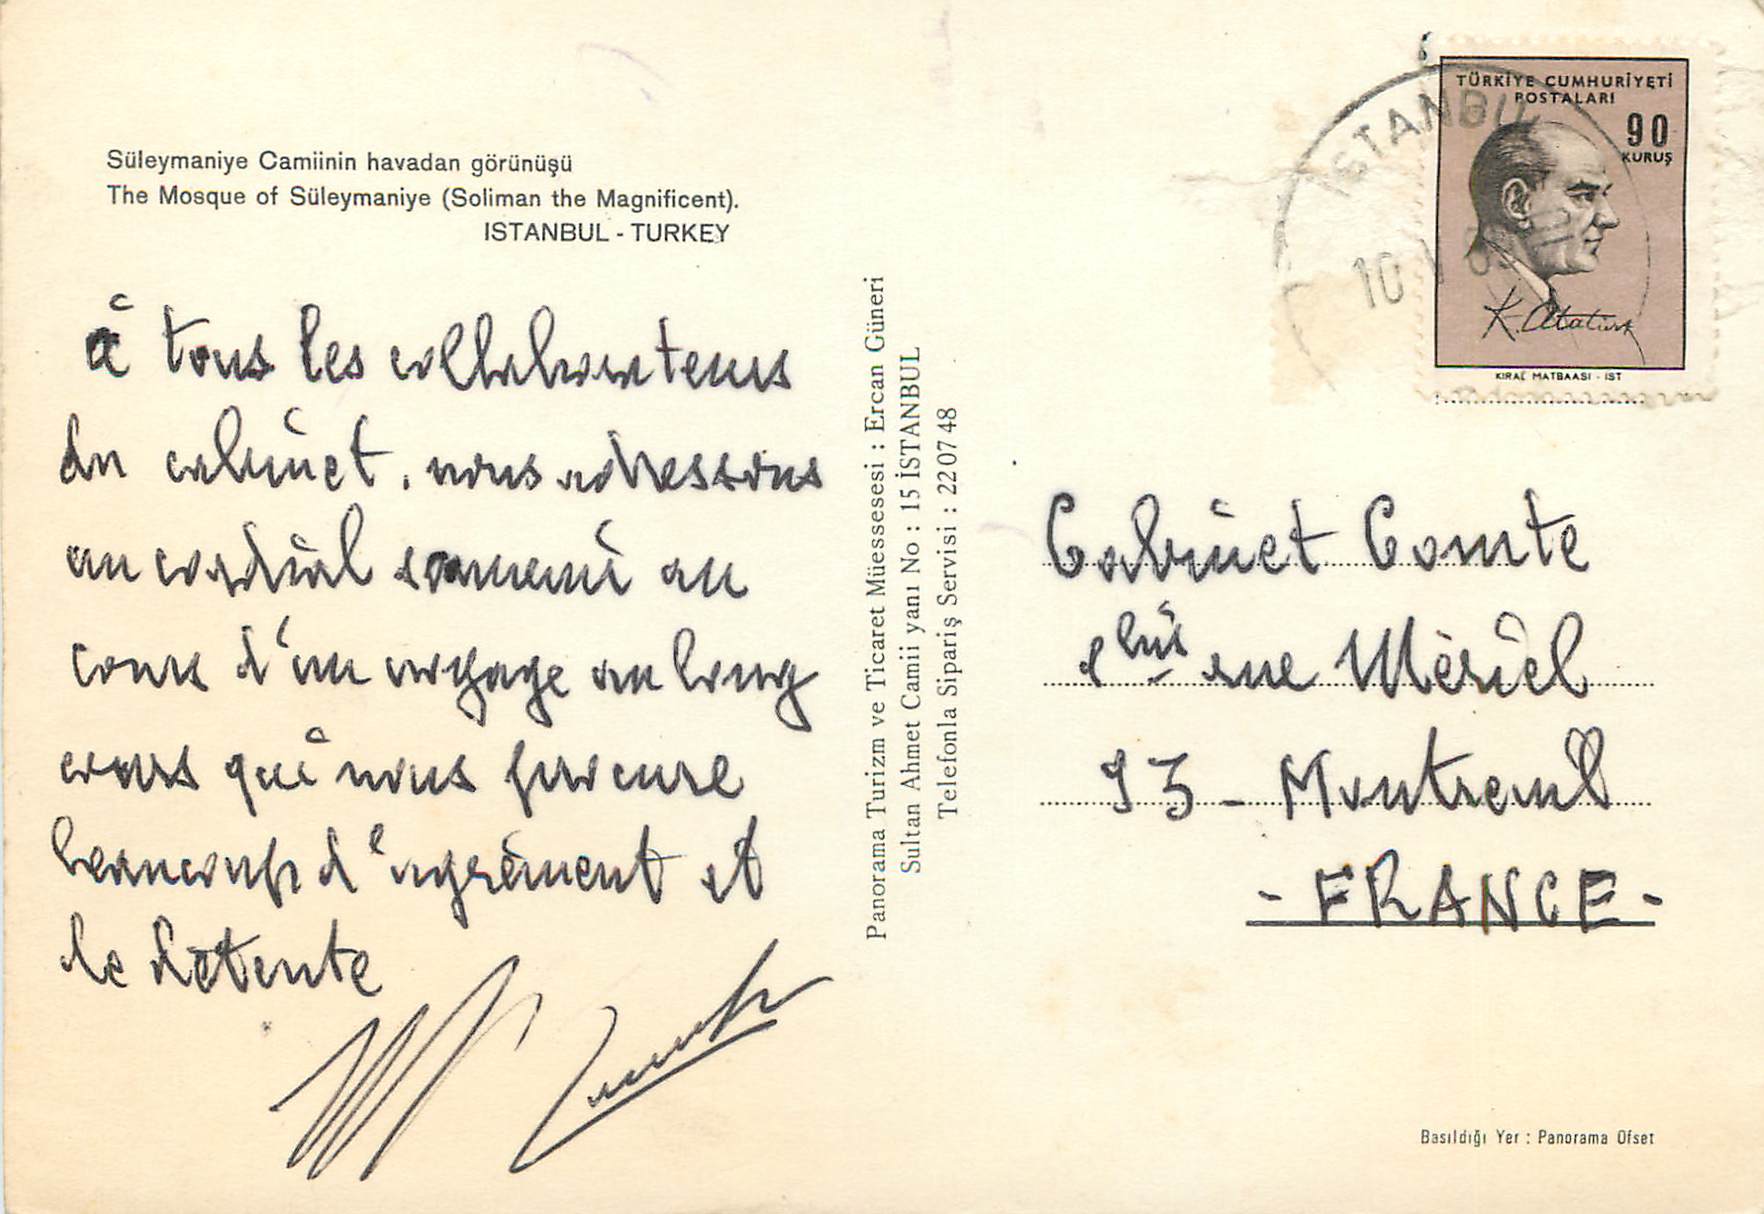 Süleymaniye Camiinin havadan görünüşü
The Mosque of Süleymaniye (Soliman the Magnificent).
ISTANBUL - TURKEY
à tous les collaborateurs
du cabinet, nous adressons
un cordial souvenir au
cours d'un voyage au long
cours qui nous procure
beaucoup d'agrément et
de détente
Panorama Turizm ve Ticaret Müessesesi : Ercan Güneri
Sultan Ahmet Camii yanı No : 15 İSTANBUL
Telefonla Sipariş Servisi : 22 07 48
ISTANBUL
10
TÜRKİYE CUMHURİYETİ
POSTALARI
90
KURUŞ
K. Atatürk
KIRAL MATBAASI - IST
Cabinet Comte
rue Mériel
93 - Montreuil
- FRANCE -
Basıldığı Yer : Panorama Ofset